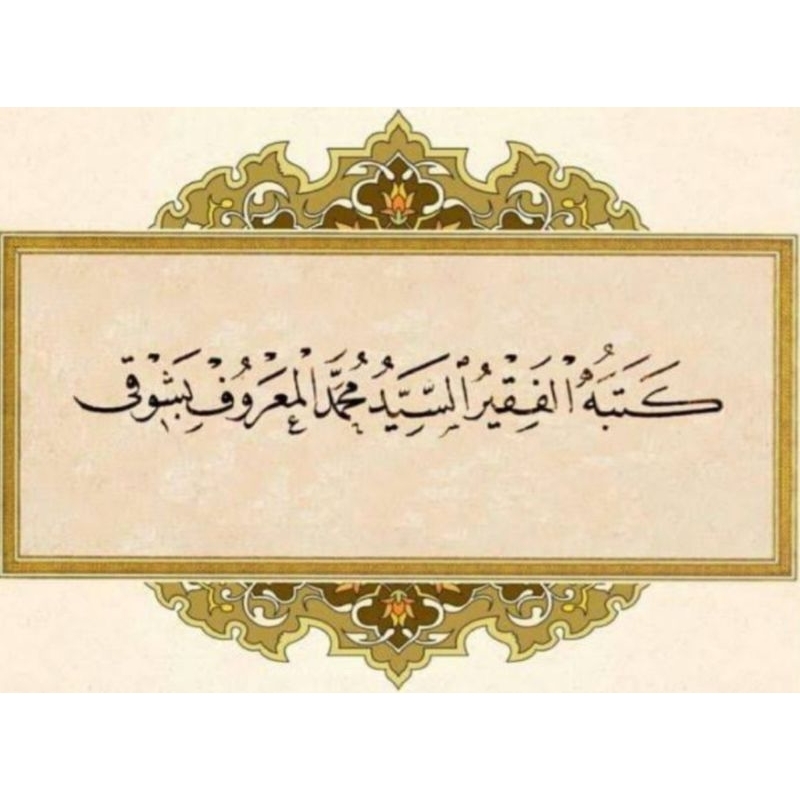 كَتَبَهُ الْفَقِيرُ السَّيِّدُ مُحَمَّدُ الْمَعْرُوفُ بِشَوْقِي